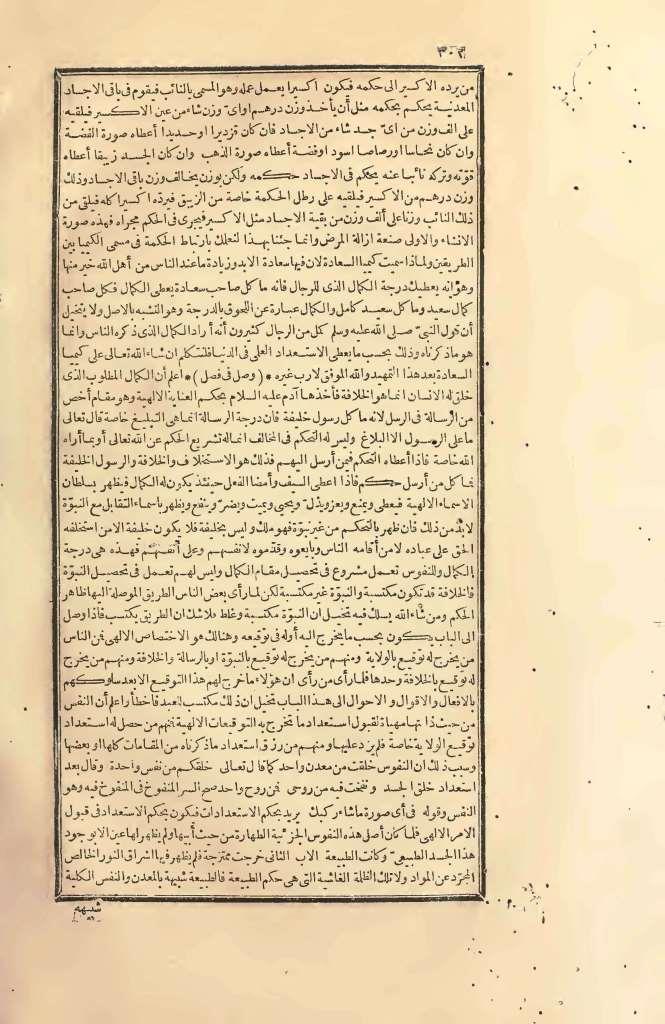 ٣٠٢
من يرده الاكسير الى حكمه فيكون اكسيرا يعمل عمله وهو المسمى بالنائب فيقوم فى باقى الاجساد
المعدنية يحكم بحكمه مثل أن يأخذ وزن درهم اواىّ وزن شاء من عين الاكسير فيلقيه
على الف وزن من اىّ جسد شاء من الاجساد فان كان قزديرا اوحديدا أعطاه صورة الفضة
وان كان نحاسا اورصاصا اسود اوفضة أعطاه صورة الذهب وان كان الجسد زيبقا أعطاه
قوّته وتركه نائبا عنه يحكم فى الاجساد حكمه ولكن بوزن يخالف وزن باقى الاجساد وذلك
وزن درهم من الاكسير فيلقيه على رطل الحكمة خاصة من الزيبق فيردّه اكسيرا كله فيلقى من
ذلك النائب وزنا على ألف وزن من بقية الاجساد مثل الاكسير فيجرى فى الحكم مجراه فهذه صورة
الانشاء والاولى صنعة ازالة المرض وانما جئنا بهذا لنعلمك بارتباط الحكمة فى مسمى الكيميا بين
الطريقين ولماذا سميت كيميا السعادة لان فيها سعادة الابد وزيادة ما عند الناس من أهل الله خير منها
وهو انه يعطيك درجة الكمال الذى للرجال فانه ما كل صاحب سعادة يعطى الكمال فكل صاحب
كمال سعيد وما كل سعيد كامل والكمال عبارة عن اللحوق بالدرجة وهو التشبه بالاصل ولا يتخيل
أن قول النبىّ صلى الله عليه وسلم كمل من الرجال كثيرون أنه أراد الكمال الذى ذكره الناس وانما
هو ما ذكرناه وذلك بحسب ما يعطى الاستعداد العلمى فى الدنيا فلنتكلم ان شاء الله تعالى على كيميا
السعادة بعد هذا التمهيد والله الموفق لا رب غيره * (وصل فى فصل) * أعلم أن الكمال المطلوب الذى
خلق له الانسان انما هو الخلافة فأخذها آدم عليه السلام بحكم العناية الالهية وهو مقام أخص
من الرسالة فى الرسل لانه ما كل رسول خليفة فان درجة الرسالة انما هى التبليغ خاصة قال تعالى
ما على الرسول الا البلاغ وليس له التحكم فى المخالف انما له تشريع الحكم عن الله تعالى أو بما أراه
الله خاصة فاذا أعطاه التحكم فيمن أرسل اليهم فذلك هو الاستخلاف والخلافة والرسول الخليفة
فما كل من أرسل حكم فاذا اعطى السيف وأمضا الفعل حينئذ يكون له الكمال فيظهر بسلطان
الاسماء الالهية فيعطى ويمنع ويعز ويذل ويحيى ويميت ويضرّ وينفع ويظهر بأسماء التقابل مع النبوّة
لابدّ من ذلك فان ظهر بالتحكم من غير نبوّة فهو ملك وليس بخليفة فلا يكون خليفة الا من استخلفه
الحق على عباده لا من أقامه الناس وبايعوه وقدّموه لانفسهم وعلى أنفسهم فهذه هى درجة
الكمال والنفوس تعمل مشروع فى تحصيل مقام الكمال وليس لهم تعمل فى تحصيل النبوّة
فالخلافة قد تكون مكتسبة والنبوّة غير مكتسبة لكن لما رأى بعض الناس الطريق الموصلة اليها ظاهر
الحكم ومن شاء الله يسلك فيه تخيل ان النبوّة مكتسبة وغلط فلا شك ان الطريق يكتسب فاذا وصل
الى الباب يكون بحسب ما يخرج اليه أوله فى توقيعه وهنالك هو الاختصاص الالهى فمن الناس
من يخرج له توقيع بالولاية ومنهم من يخرج له توقيع بالنبوّة او بالرسالة والخلافة ومنهم من يخرج
له توقيع بالخلافة وحدها فلما رأى من رأى ان هؤلاء ما خرج لهم هذا التوقيع الا بعد سلوكهم
بالافعال والاقوال والاحوال الى هذا الباب تخيل ان ذلك مكتسب للعبد فأخطأ واعلم أن النفس
من حيث ذاتها مهيأة لقبول استعداد ما تخرج به التوقيعات الالهية فمنهم من حصل له استعداد
توقيع الولاية خاصة فلم يزد عليها ومنهم من رزق استعداد ما ذكرناه من المقامات كلها او بعضها
وسبب ذلك ان النفوس خلقت من معدن واحد كما قال تعالى خلقكم من نفس واحدة وقال بعد
استعداد خلق الجسد ونفخت فيه من روحى فمن روح واحد صح السر المنفوخ فى المنفوخ فيه وهو
النفس وقوله فى أى صورة ما شاء ركبك يريد بحكم الاستعدادات فيكون بحكم الاستعداد فى قبول
الامر الالهى فلما كان أصل هذه النفوس الجزئية الطهارة من حيث أبيها ولم يظهر لها عين الا بوجود
هذا الجسد الطبيعىّ وكانت الطبيعة الاب الثانى خرجت ممتزجة فلم يظهر فيها اشراق النور الخالص
المجرّد عن المواد ولا تلك الظلمة الغاشية التى هى حكم الطبيعة فالطبيعة شبيهة بالمعدن والنفس الكلية
شبيهة